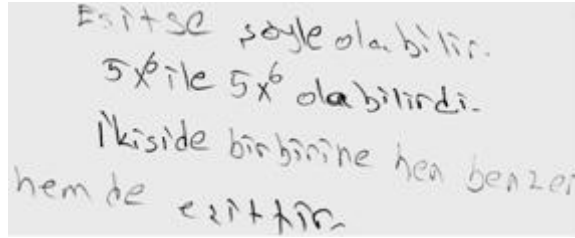 Esitse şöyle olabilir.
5x⁶ ile 5x⁶ olabilirdi.
İkiside birbirine hem benzer
hem de esittir.